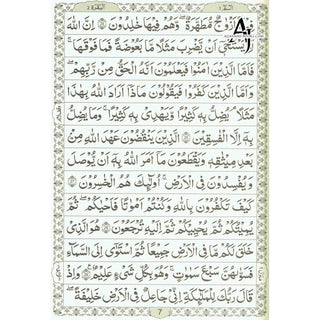 البقرة ٢
السم ١
فيها ازواج مطهرة وهم فيها خلدون ان الله
لا يستحى ان يضرب مثلا ما بعوضة فما فوقها
فاما الذين امنوا فيعلمون انه الحق من ربهم
واما الذين كفروا فيقولون ماذا اراد الله بهذا
مثلا يضل به كثيرا ويهدى به كثيرا وما يضل
به الا الفسقين الذين ينقضون عهد الله من
بعد ميثاقه ويقطعون ما امر الله به ان يوصل
ويفسدون فى الارض اولىك هم الخسرون
كيف تكفرون بالله وكنتم امواتا فاحياكم ثم
يميتكم ثم يحييكم ثم اليه ترجعون هو الذى
خلق لكم ما فى الارض جميعا ثم استوى الى السماء
فسوىهن سبع سموت وهو بكل شىء عليم واذ
قال ربك للملىكة انى جاعل فى الارض خليفة
7